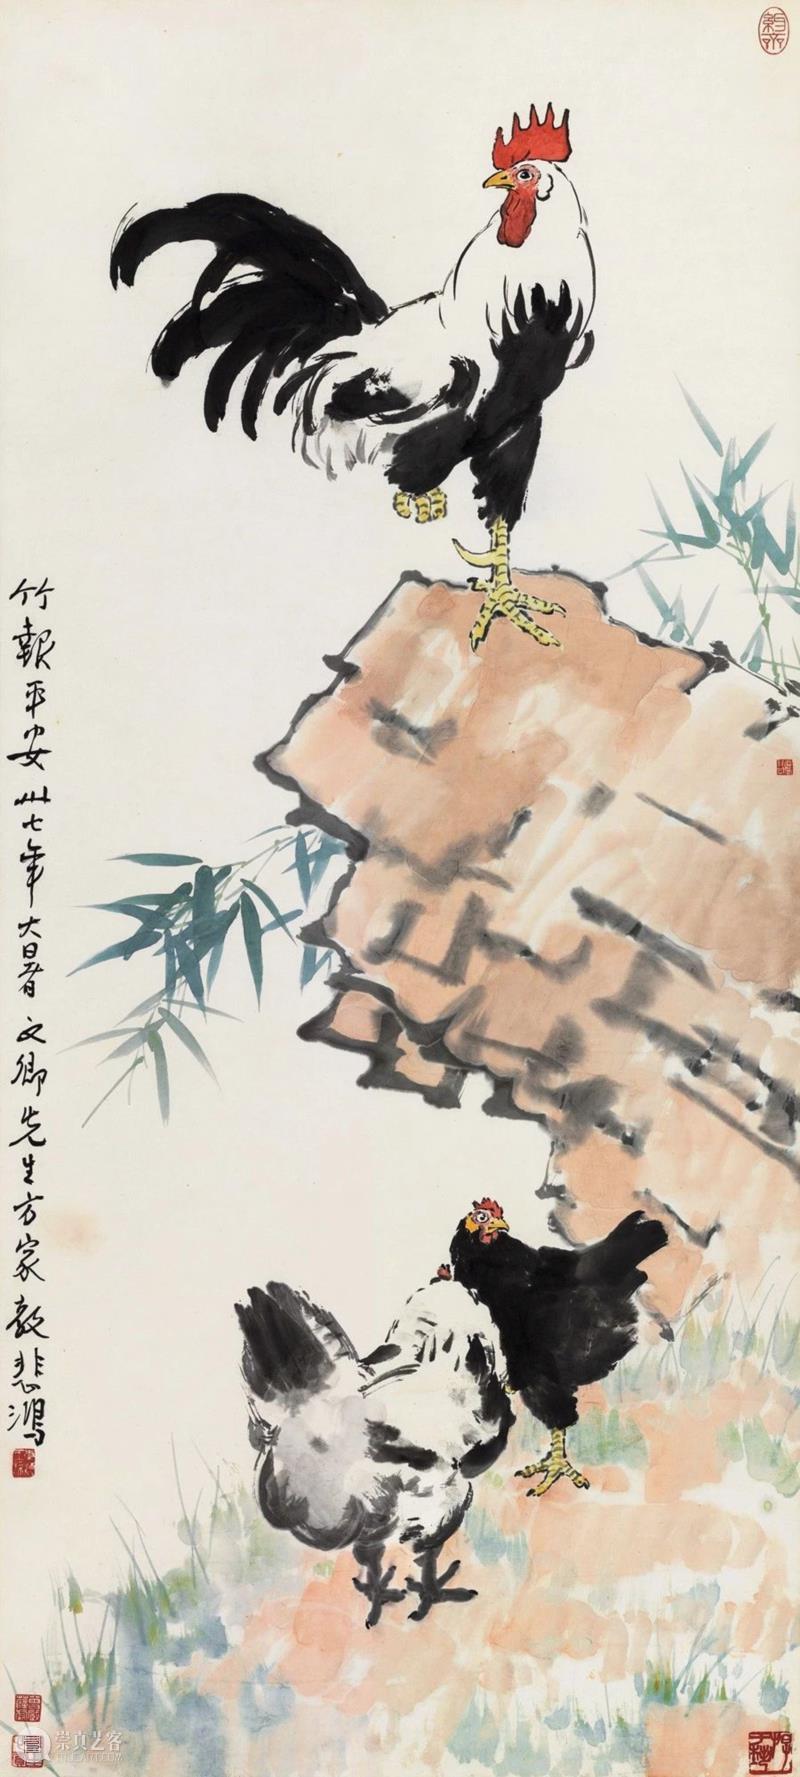 竹報平安卅七年大暑文卿先生方家教悲鴻
崇真艺客